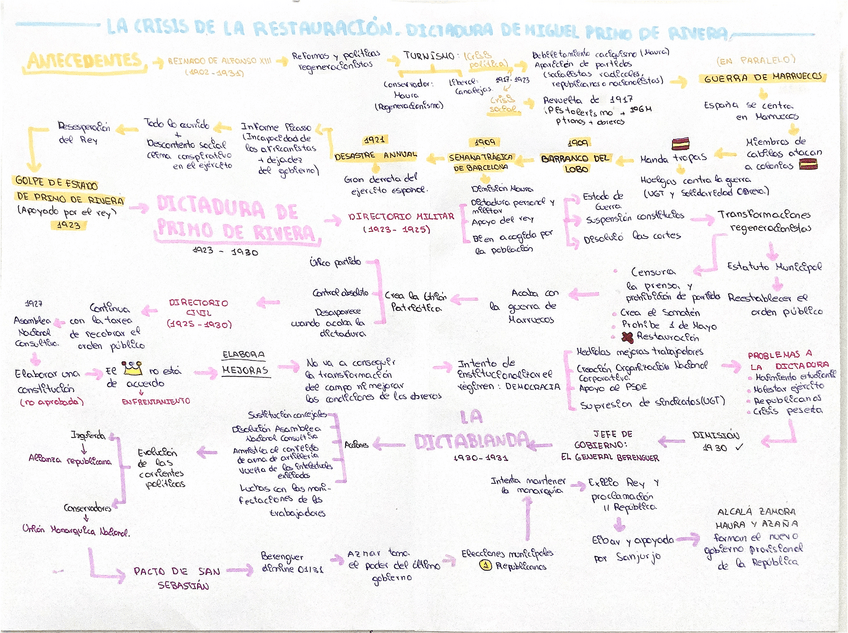 LA CRISIS DE LA RESTAURACIÓN. DICTADURA DE MIGUEL PRIMO DE RIVERA.
ANTECEDENTES
REINADO DE ALFONSO XIII
(1902-1931)
Reformas y políticas
regeneracionistas
TURNISMO:
Conservador:
Maura
(Regeneracionismo)
liberal:
Canalejas
Crisis
política
1917-1923
Crisis
social
Debilitamiento caciquismo (Maura)
Aparición de partidos
(socialistas radicales,
republicanos o nacionalistas)
Revuelta de 1917
(EN PARALELO)
GUERRA DE MARRUECOS
España se centra
en Marruecos
Miembros de
cabilas atacan
a colonias
Manda tropas
Huelgas contra la guerra
(UGT y Solidaridad Obrera)
1909
BARRANCO DEL
LOBO
1909
SEMANA TRÁGICA
DE BARCELONA
Dimisión Maura
1921
DESASTRE ANNUAL
Gran derrota del
ejército español.
Informe Picasso
(Incapacidad de
los africanistas
+ dejadez
del gobierno)
Todo lo ocurrido
+
Descontento social
(clima conspirativo
en el ejército)
Desesperación
del Rey
GOLPE DE ESTADO
DE PRIMO DE RIVERA
(Apoyado por el rey)
1923
DICTADURA DE
PRIMO DE RIVERA
1923 - 1930
DIRECTORIO MILITAR
(1923- 1925)
Dictadura personal y
militar
Apoyo del rey
Bien acogido por
la población
Estado de
Guerra
Suspensión constitución
Disolvió las cortes
Transformaciones
regeneracionistas
Estatuto Municipal
Reestablecer el
orden público
Censura
la prensa, y
prohibición de partidos
Crea el Somatén
Prohíbe 1 de Mayo
Restauración
Acaba con
la guerra de
Marruecos
Crea la Unión
Patriótica
Único partido
Control absoluto
Desaparece
cuando acaba la
dictadura
DIRECTORIO
CIVIL
(1925-1930)
Continua
con la tarea
de recobrar el
orden público
1927
Asamblea
Nacional
Consultiva.
Elaborar una
constitución
(no aprobada)
El
no está
de acuerdo
ENFRENTAMIENTO
ELABORA
MEJORAS
No va a conseguir
la transformación
del campo ni mejorar
las condiciones de los obreros
Intento de
institucionalizar el
régimen: DEMOCRACIA
Medidas mejoras trabajadores
Creación Organización Nacional
Corporativa
Apoyo al PSOE
Supresion de sindicatos(UGT)
PROBLEMAS A
LA DICTADURA
Movimiento estudiantil
Malestar ejército
Republicanos
Crisis peseta
DIMISIÓN
1930 ✓
JEFE DE
GOBIERNO:
EL GENERAL BERENGUER
LA
DICTABLANDA
1930-1931
Acciones
Sustitución concejales
Disolución Asamblea
Nacional Consultiva
Vuelta de los intelectuales
exiliados
Luchas con las mani-
festaciones de los
trabajadores
Evolución
de las
corrientes
políticas
Izquierda
Alianza republicana
Conservadores
Unión Monarquica Nacional.
PACTO DE SAN
SEBASTIÁN
Berenguer
dimine 01/31
Aznar toma
el poder del último
gobierno
Elecciones municipales
1 Republicanos
Intenta mantener
la monarquía
Exilio Rey y
proclamación
II República
y apoyado
por Sanjurjo
ALCALÁ ZAMORA
MAURA Y AZAÑA
forman el nuevo
gobierno provisional
de la República